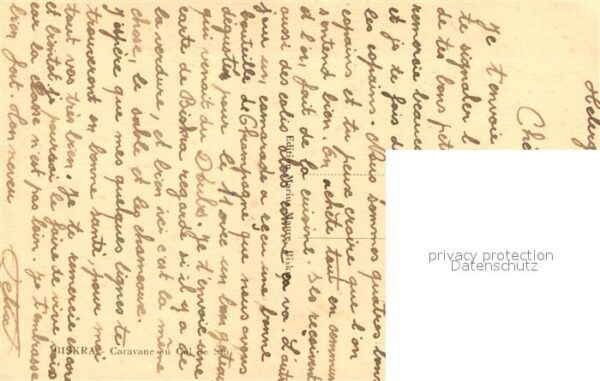 Je t'envoie
te signaler l
de tes bons
remercie beauc
et je te fais d
les copains. Nous sommes quatres bons
copains et tu peux croire que l'on
s'entend bien. On achète tout en commun
et l'on fait de la cuisine. Ils reçoivent
aussi des colis alors comme ça va. L'autre
jour un camarade a reçu une bonne
bouteille de Champagne que nous avons
dégustée pour le 11 avec un bon gâteau
qui venait du Doubs. Je t'envoie une
carte de Biskra regarde si il y a de
la verdure, et bien ici c'est la même
chose, le sable et les chameaux.
J'espère que mes quelques lignes te
trouveront en bonne santé, pour moi
tout va très bien. Je te remercie encore
et bientôt je pourrai le faire de vive voix
car la classe n'est pas loin. Je t'embrasse
bien fort. Ton neveu
Edition Maure, Biskra
BISKRA Caravane au Col de Sfa
privacy protection
Datenschutz